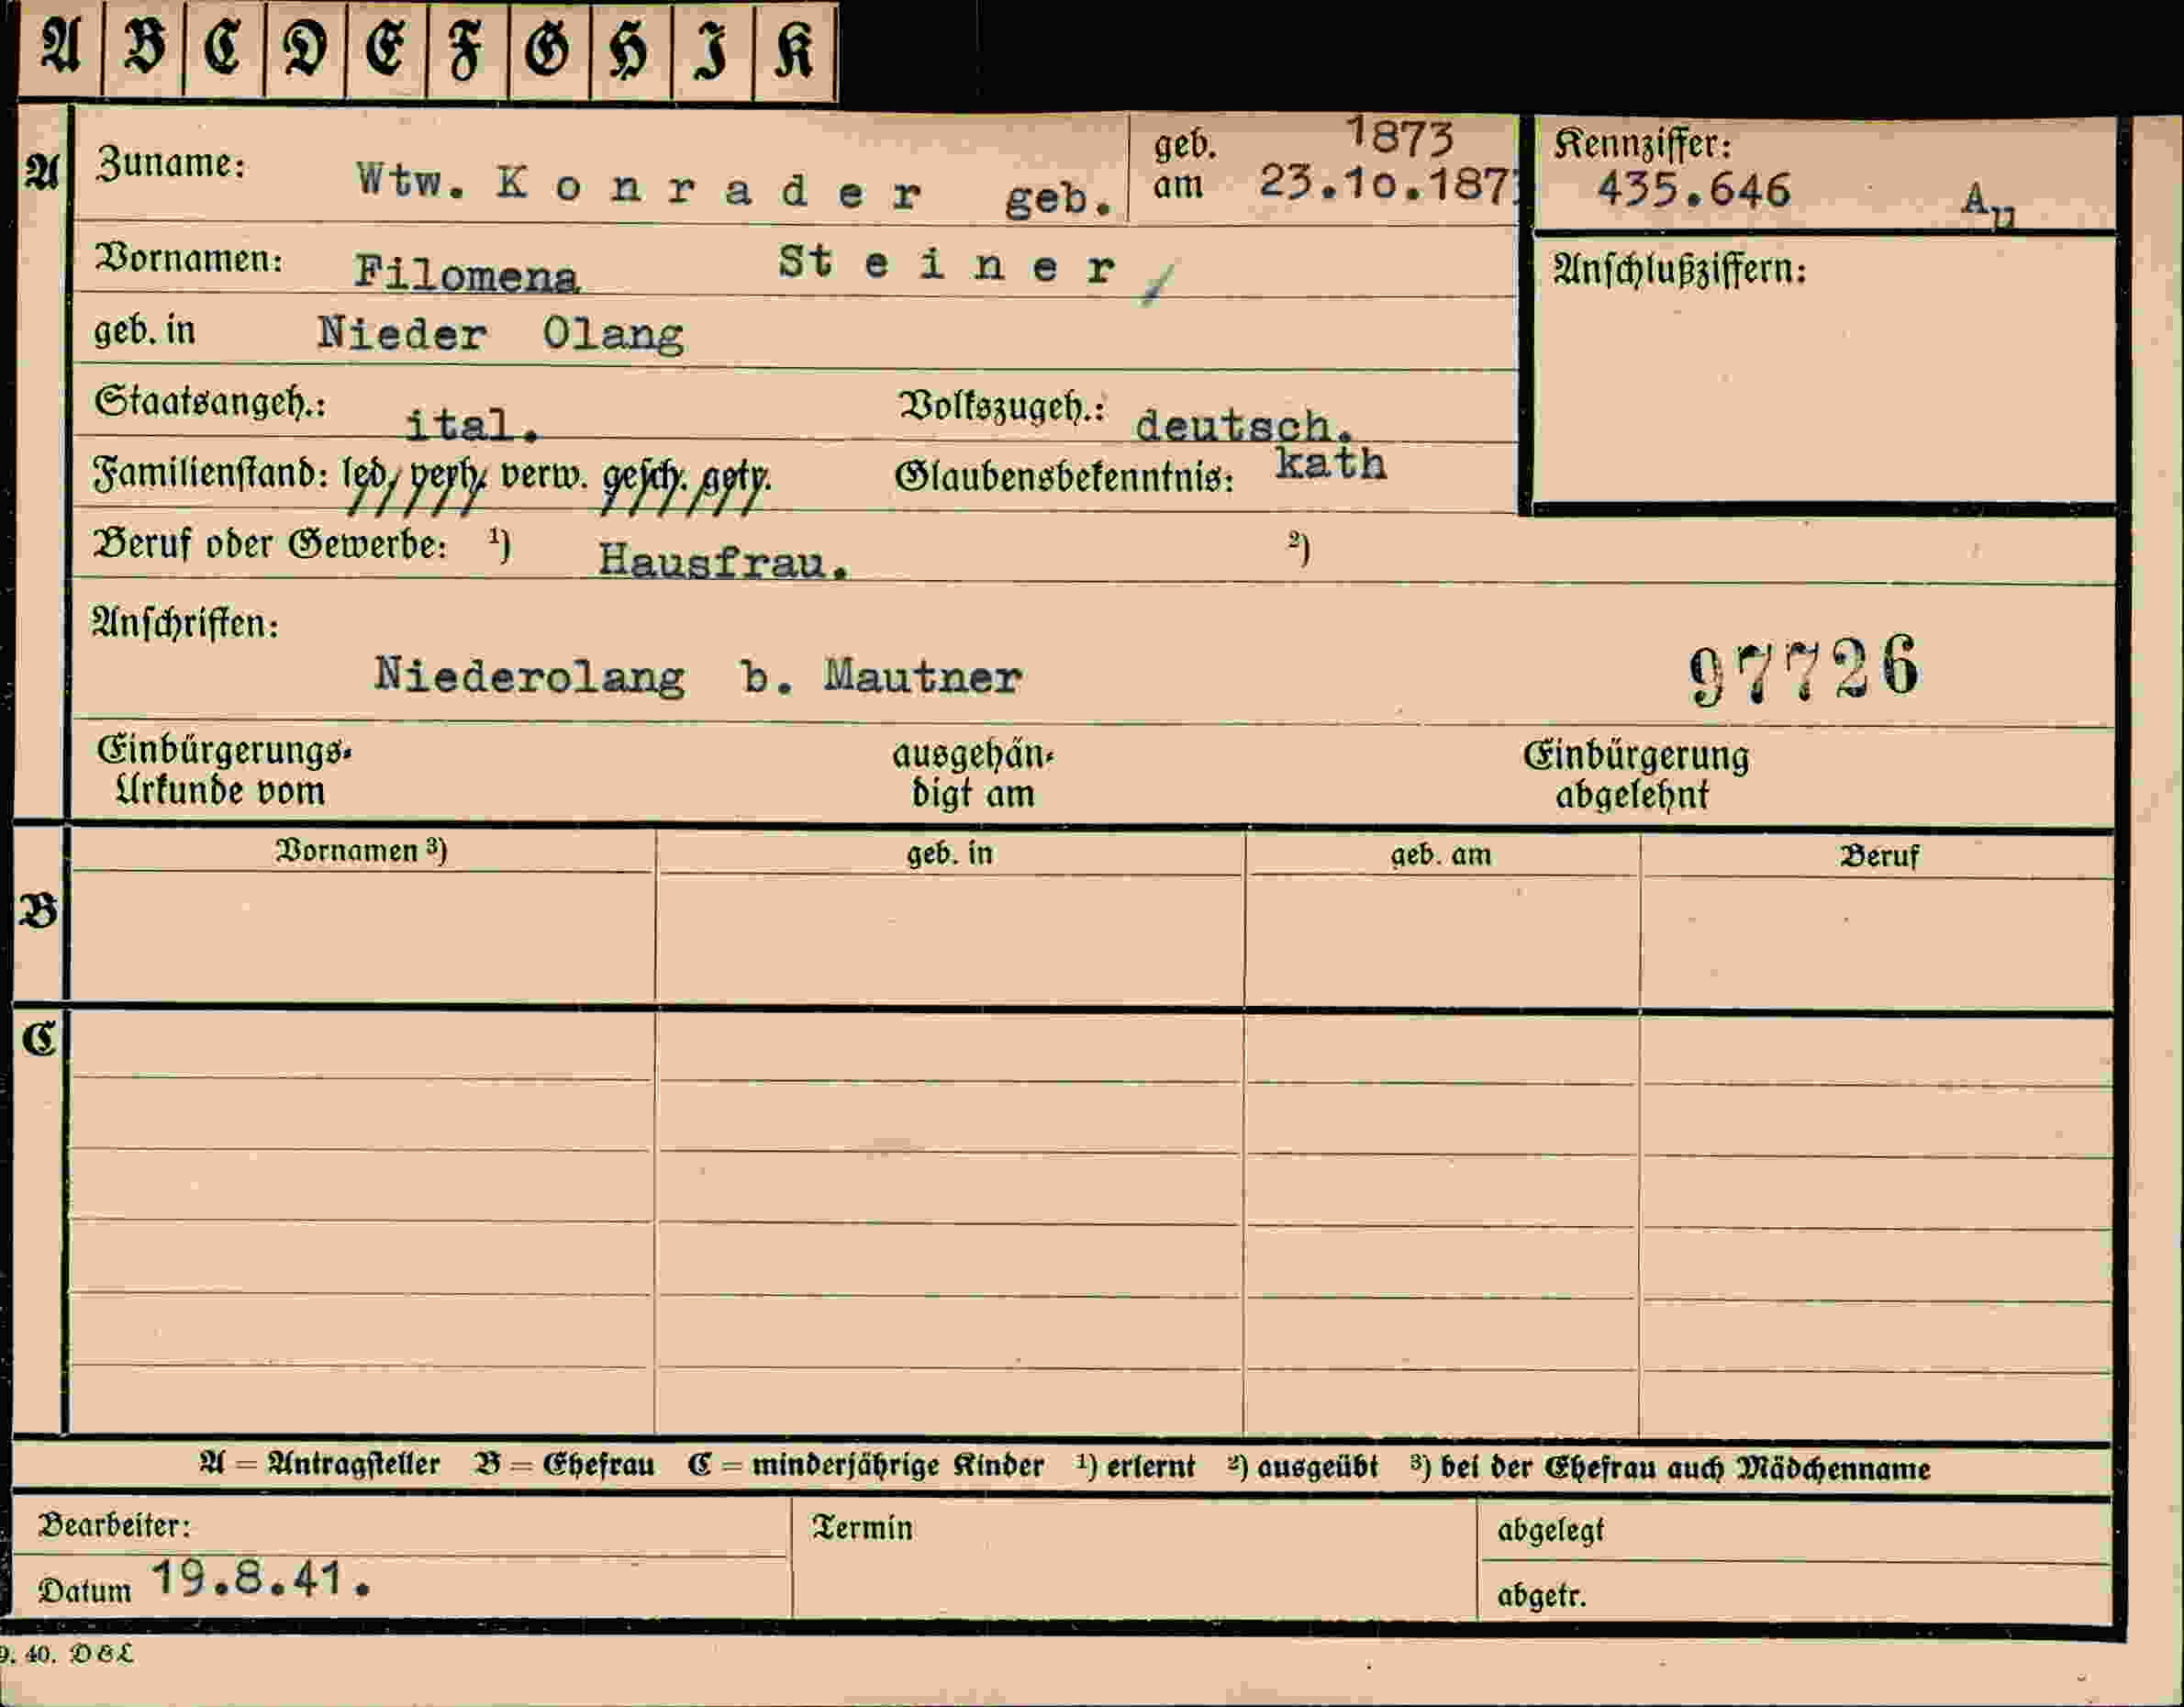 A B C D E F G H I K
A Zuname: Wtw. Konrader geb. geb. am 1873 23.10.187 Kennziffer: 435.646 Au
Vornamen: Filomena Steiner, Anschlußziffern:
geb. in Nieder Olang
Staatsangeh.: ital. Volkszugeh.: deutsch.
Familienstand: led. verh. verw. gesch. getr. Glaubensbekenntnis: kath
Beruf oder Gewerbe: ¹) Hausfrau. ²)
Anschriften:
Niederolang b. Mautner 97726
Einbürgerungs- ausgehän- Einbürgerung
Urkunde vom digt am abgelehnt
Vornamen ³) geb. in geb. am Beruf
B
C
A = Antragsteller B = Ehefrau C = minderjährige Kinder ¹) erlernt ²) ausgeübt ³) bei der Ehefrau auch Mädchenname
Bearbeiter: Termin abgelegt
Datum 19.8.41. abgetr.
9. 40. D&L